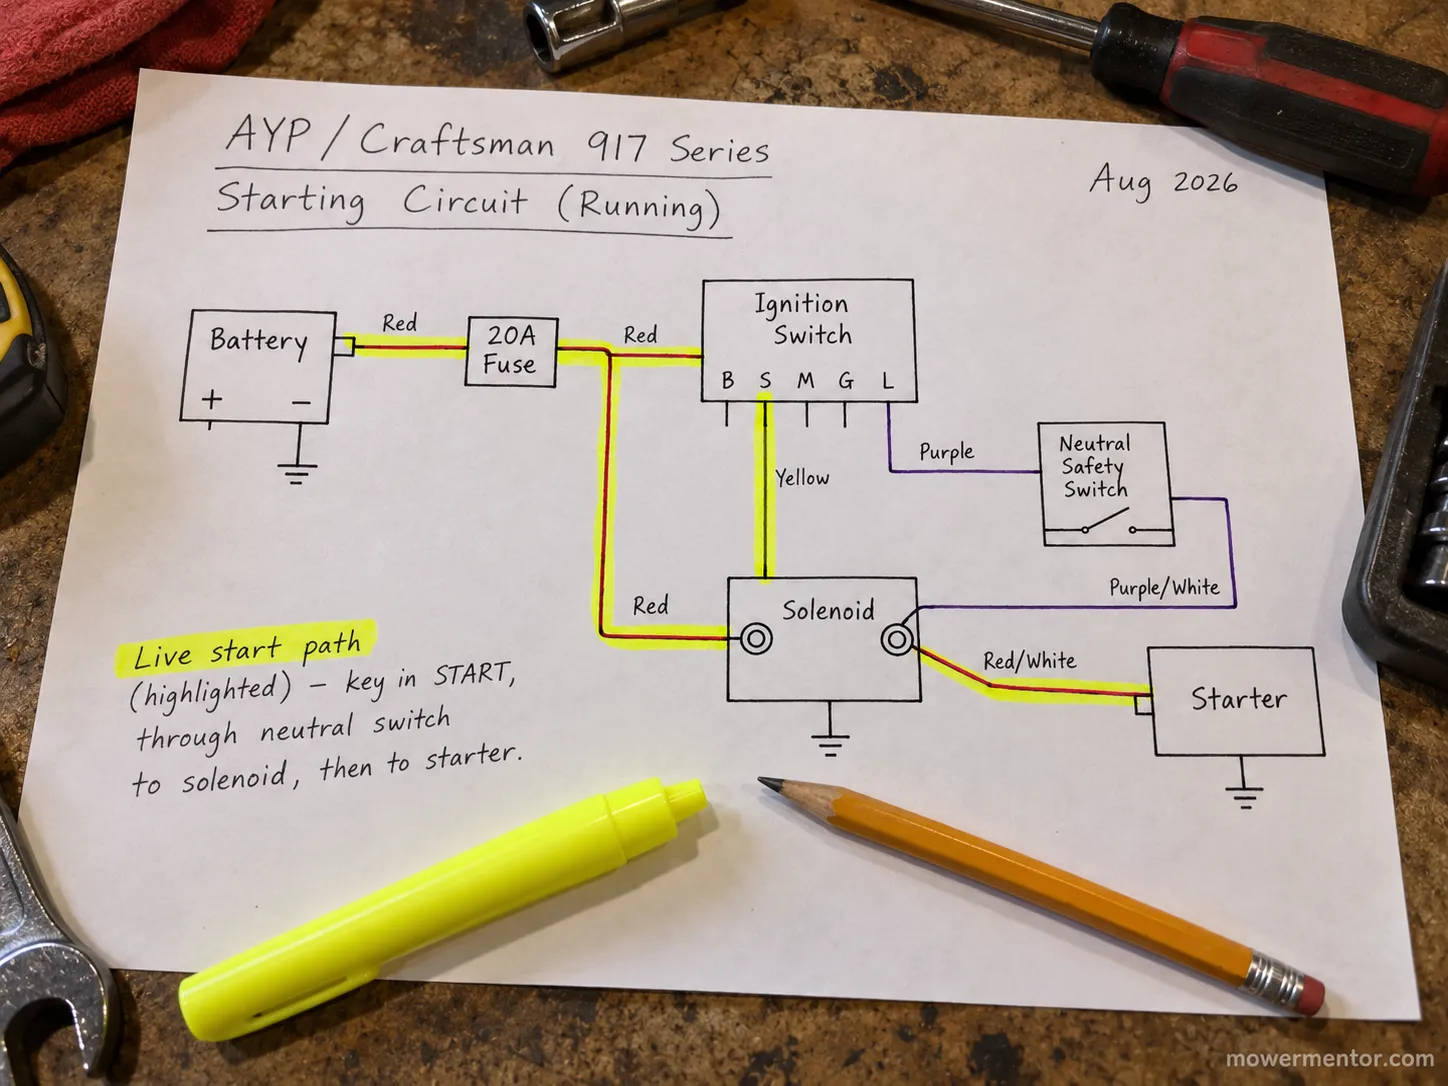 AYP / Craftsman 917 Series
Starting Circuit (Running)
Aug 2026
Battery
+ −
Red
20A
Fuse
Red
Ignition
Switch
B S M G L
Yellow
Purple
Neutral
Safety
Switch
Purple/White
Red
Solenoid
Red/White
Starter
Live start path
(highlighted) – key in START,
through neutral switch
to solenoid, then to starter.
mowermentor.com